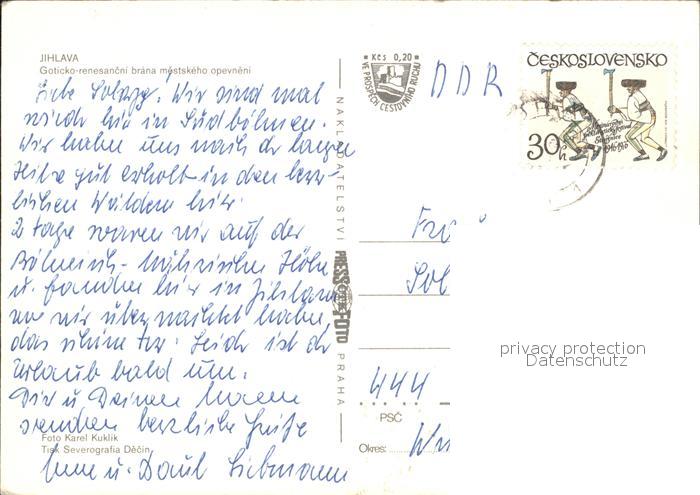 JIHLAVA
Goticko-renesanční brána městského opevnění
Kčs 0,20
VE PROSPĚCH CESTOVNÍHO RUCHU
DDR
ČESKOSLOVENSKO
30h
1946-1986
Wir sind mal
wieder hier in Südböhmen.
Wir haben uns nach der langen
gut erholt in den herr-
lichen Wäldern hier.
2 Tage waren wir auf der
Böhmisch-Mährischen Höhe
u. fanden hier in Jihlava
wo wir übernachtet haben,
das schöne Tor. Leider ist der
Urlaub bald um.
Dir u Deinen
senden herzliche Grüße
u. Liebmann
NAKLADATELSTVÍ PRESSFOTO PRAHA
Foto Karel Kuklík
Tisk Severografia Děčín
444
PSČ
Okres:
privacy protection
Datenschutz